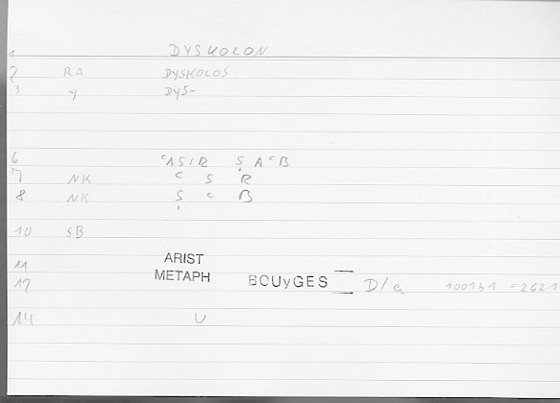 1 DYSKOLON
2 RA DYSKOLOS
3 y DYS-
6 ᶜASIR ṢAᶜB
7 NK ᶜ S R
8 NK Ṣ ᶜ B
10 SB
11 ARIST
METAPH
12 BOUyGES D/a 1001b1 = 262,1
14 U